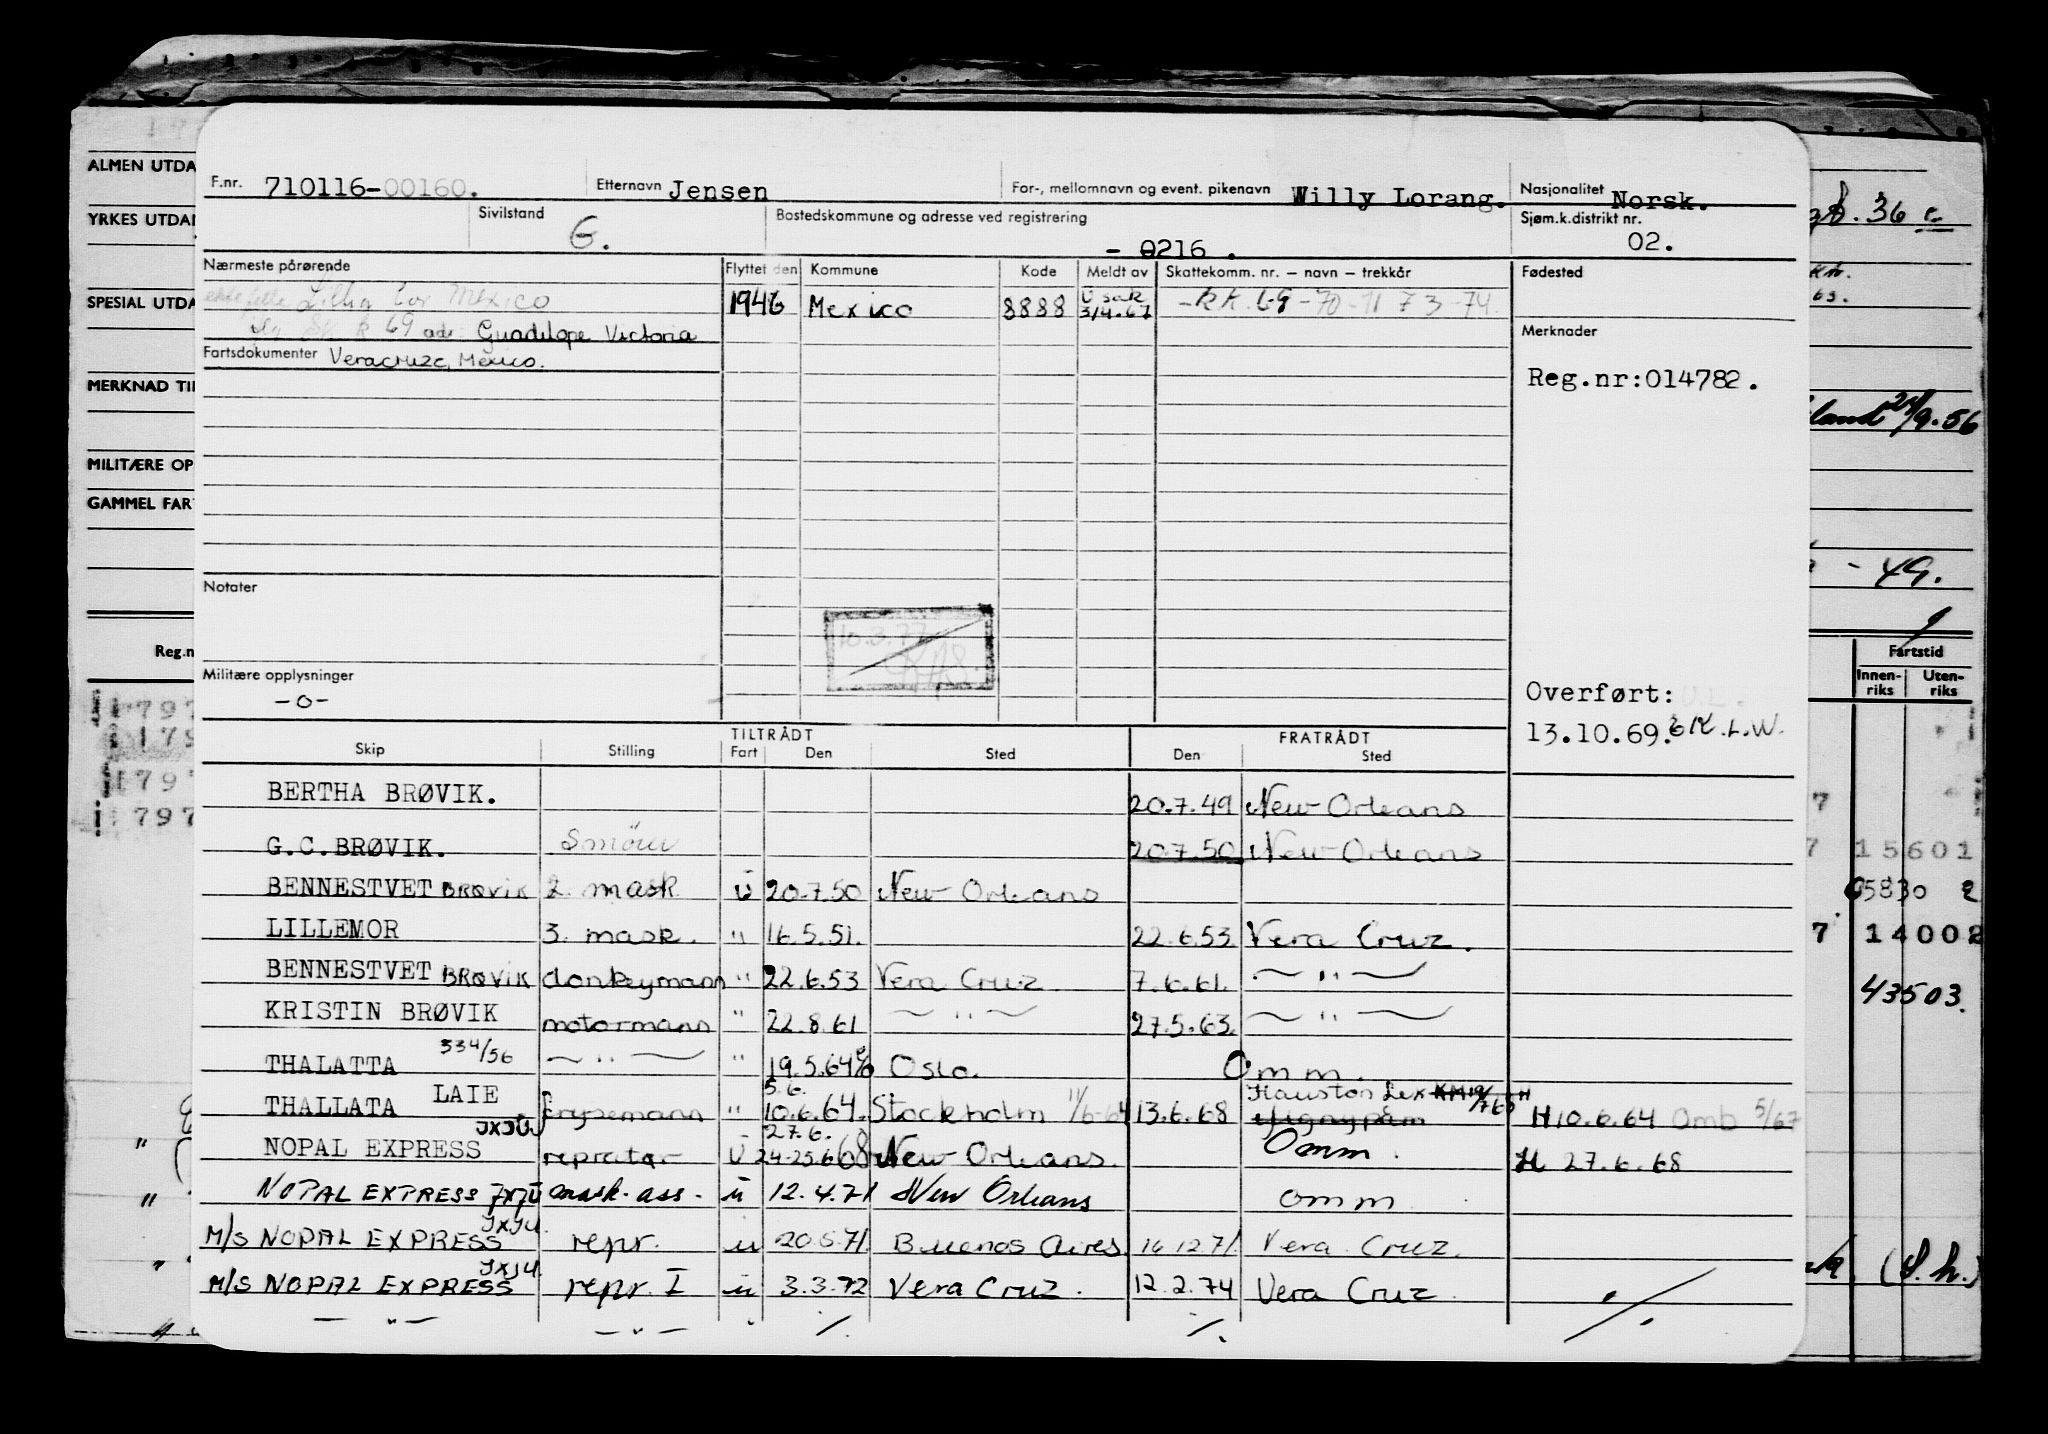 F.nr. 710116-00160. Etternavn Jensen For-, mellomnavn og event. pikenavn Willy Lorang. Nasjonalitet Norsk.
Sivilstand G. Bostedskommune og adresse ved registrering - 0216. Sjøm.k.distrikt nr. 02.
Nærmeste pårørende Flyttet den Kommune Kode Meldt av Skattekomm. nr. – navn – trekkår Fødested
Mexico 1946 Mexico 8888 3/4.67 69-70-71 73-74
69 adr: Guadelope Victoria Merknader
Fartsdokumenter Veracruze, Mexico.
Reg.nr:014782.
Notater
10.3.77
Militære opplysninger
-o-
Overført:
13.10.69. K.L.W.
TILTRÅDT FRATRÅDT
Skip Stilling Fart Den Sted Den Sted
BERTHA BRØVIK. 20.7.49 New Orleans
G.C.BRØVIK. Smører 20.7.50 New Orleans
BENNESTVET BRØVIK 2. mask ü 20.7.50 New Orleans
LILLEMOR 3. mask. " 16.5.51. 22.6.53 Vera Cruz.
BENNESTVET BRØVIK donkeymann " 22.6.53 Vera Cruz 7.6.61. — " —
KRISTIN BRØVIK motormann " 22.8.61 — " — 27.5.63. — " —
THALATTA 334/56 — " — " 19.5.64 Oslo. Omm.
THALLATA LAIE frysemann " 5.6. 10.6.64. Stockholm 11/6-64 13.6.68 Houston H10.6.64 Omb 5/67
NOPAL EXPRESS JXJU repratør Ü 27.6. 24-25.6.68 New Orleans. Omm. H 27.6.68
NOPAL EXPRESS JXJU mask. ass. ü 12.4.71 New Orleans omm
M/S NOPAL EXPRESS JXJU. repr. ü 20.5.71. Buenos Aires 16.12.71. Vera Cruz.
M/S NOPAL EXPRESS JXJU. repr. I ü 3.3.72 Vera Cruz. 12.2.74 Vera Cruz.
— " — — " — ./. ./. ./.
ALMEN UTDA
YRKES UTDA
SPESIAL UTDA
MERKNAD TI
MILITÆRE OP
GAMMEL FAR
Reg.n
1797
179
1797
1797
36
24/9.56
- 49.
Fartstid
Innen-riks Uten-riks
7
7 15601
5830
7 14002
43503.
(S.h.)